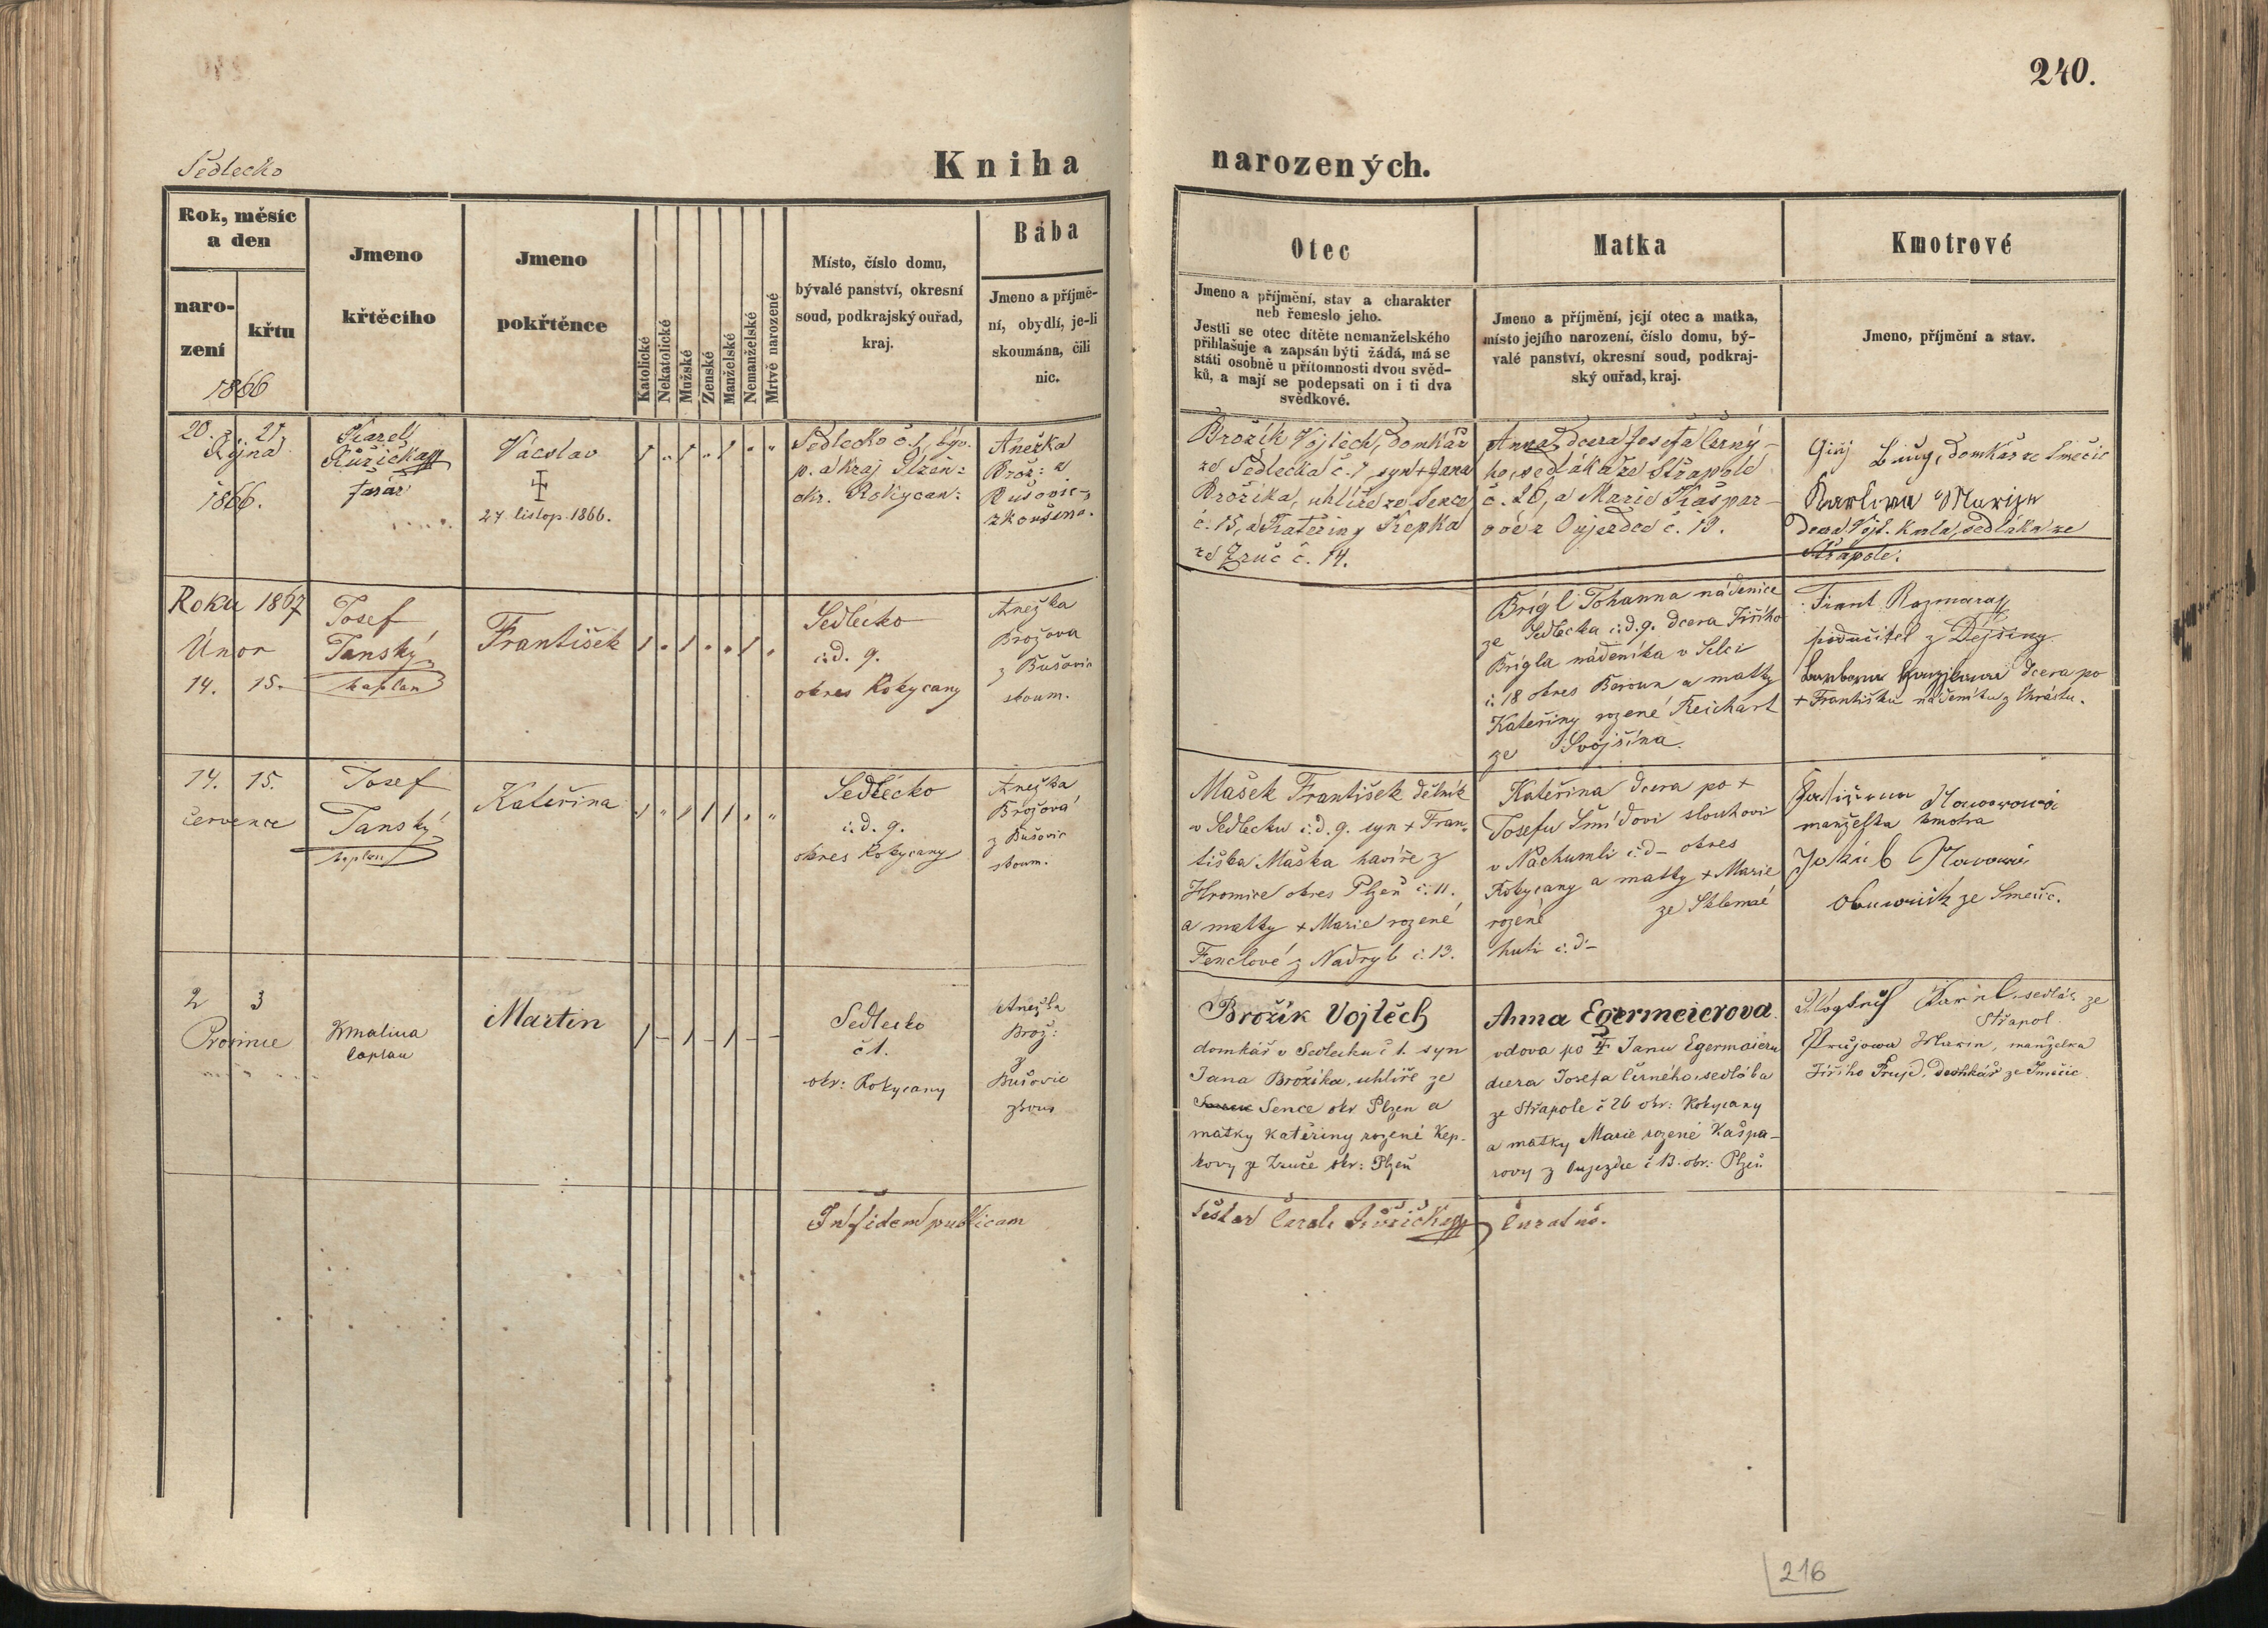 240.
Sedlecko
Kniha narozených.
Rok, měsíc
a den
naro-
zení
křtu
1866
Jmeno
křtěcího
Jmeno
pokřtěnce
Katolické
Nekatolické
Mužské
Zenské
Manželské
Nemanželské
Mrtvě narozené
Místo, číslo domu,
bývalé panství, okresní
soud, podkrajský ouřad,
kraj.
Bába
Jmeno a příjmě-
ní, obydlí, je-li
skoumána, čili
nic.
Otec
Jmeno a příjmění, stav a charakter
neb řemeslo jeho.
Jestli se otec dítěte nemanželského
přihlašuje a zapsán býti žádá, má se
státi osobně u přítomnosti dvou svěd-
ků, a mají se podepsati on i ti dva
svědkové.
Matka
Jmeno a příjmění, její otec a matka,
místo jejího narození, číslo domu, bý-
valé panství, okresní soud, podkraj-
ský ouřad, kraj.
Kmotrové
Jmeno, příjmění a stav.
20. 21.
Října
1866.
Karel
Růžička
farář
Vácslav
27 listop. 1866.
Sedlecko č. 1, býv.
p. a kraj Plzeň:
okr. Rokycan:
Anežka
Brož: z
Bušovic,
zkoušena.
Brožík Vojtěch, domkář
ze Sedlecka č. 1, syn + Jana
Brožíka, uhlíře ze Sence
č. 15, a Kateřiny Kepka
ze Zruč č. 14.
Anna, dcera Josefa Černý-
ho, sedláka ze Střapolé
č. 26, a Marie Kašpar-
ové z Oujezdce č. 13.
Giří, domkář ze Smečic
Marije
dcera Vojt. sedláka ze
Střapole.
Roku 1867
Únor
14. 15.
Josef
Tanský
kaplan
František
Sedlecko
č. d. 9.
okres Rokycany
Anežka
Brožova
z Bušovic
skoum.
Brígl Johanna nádenice
ze Sedlecka č. d. 9. dcera Jiřího
Brígla nádeníka v Selci
č. 18 okres Beroun a matky
Kateřiny rozené Reichart
ze Svojšína.
Frant. Rozmara
podučitel z Dejšiny
Barbora dcera po
+ Františku nádeníku z Chrástu.
14. 15.
července
Josef
Tanský
kaplan
Kateřina
Sedlecko
č. d. 9.
okres Rokycany
Anežka
Brožová
z Bušovic
skoum.
Mašek František dělník
v Sedlecku č. d. 9. syn + Fran-
tiška Maška havíře z
Hromice okres Plzeň č. 11.
a matky + Marie rozené
Fenclové z Nadryb č. 13.
Kateřina dcera po +
Josefu Šmídovi slouhovi
v Náchumli č. d – okres
Rokycany a matky + Marie
rozené ze Sklenné
huti č. d –
manželka kmotra
Jakub
obuvník ze Smečic.
2 3
Prosince
Kmalina
caplan
Martin
Sedlecko
č 1.
okr: Rokycany
Anežka
Brož:
z
Bušovic
zkous
Brožík Vojtěch
domkář v Sedlecku č 1. syn
Jana Brožíka, uhlíře ze
Sence okr Plzen a
matky Kateřiny rozené Kep-
kovy ze Zruče okr: Plzeň
Anna Egermeierova
vdova po Janu Egermaieru
dcera Josefa Černého, sedláka
ze Střapole č 26 okr: Rokycany
a matky Marie rozené Kašpa-
rovy z Oujezdce č 13. okr: Plzeň
Karel, sedlák ze
Střapol
Marie, manželka
Jiřího Prujd, domkář ze Smečic
In fidem publicam
testor Carol. Růžička
Curatus.
216